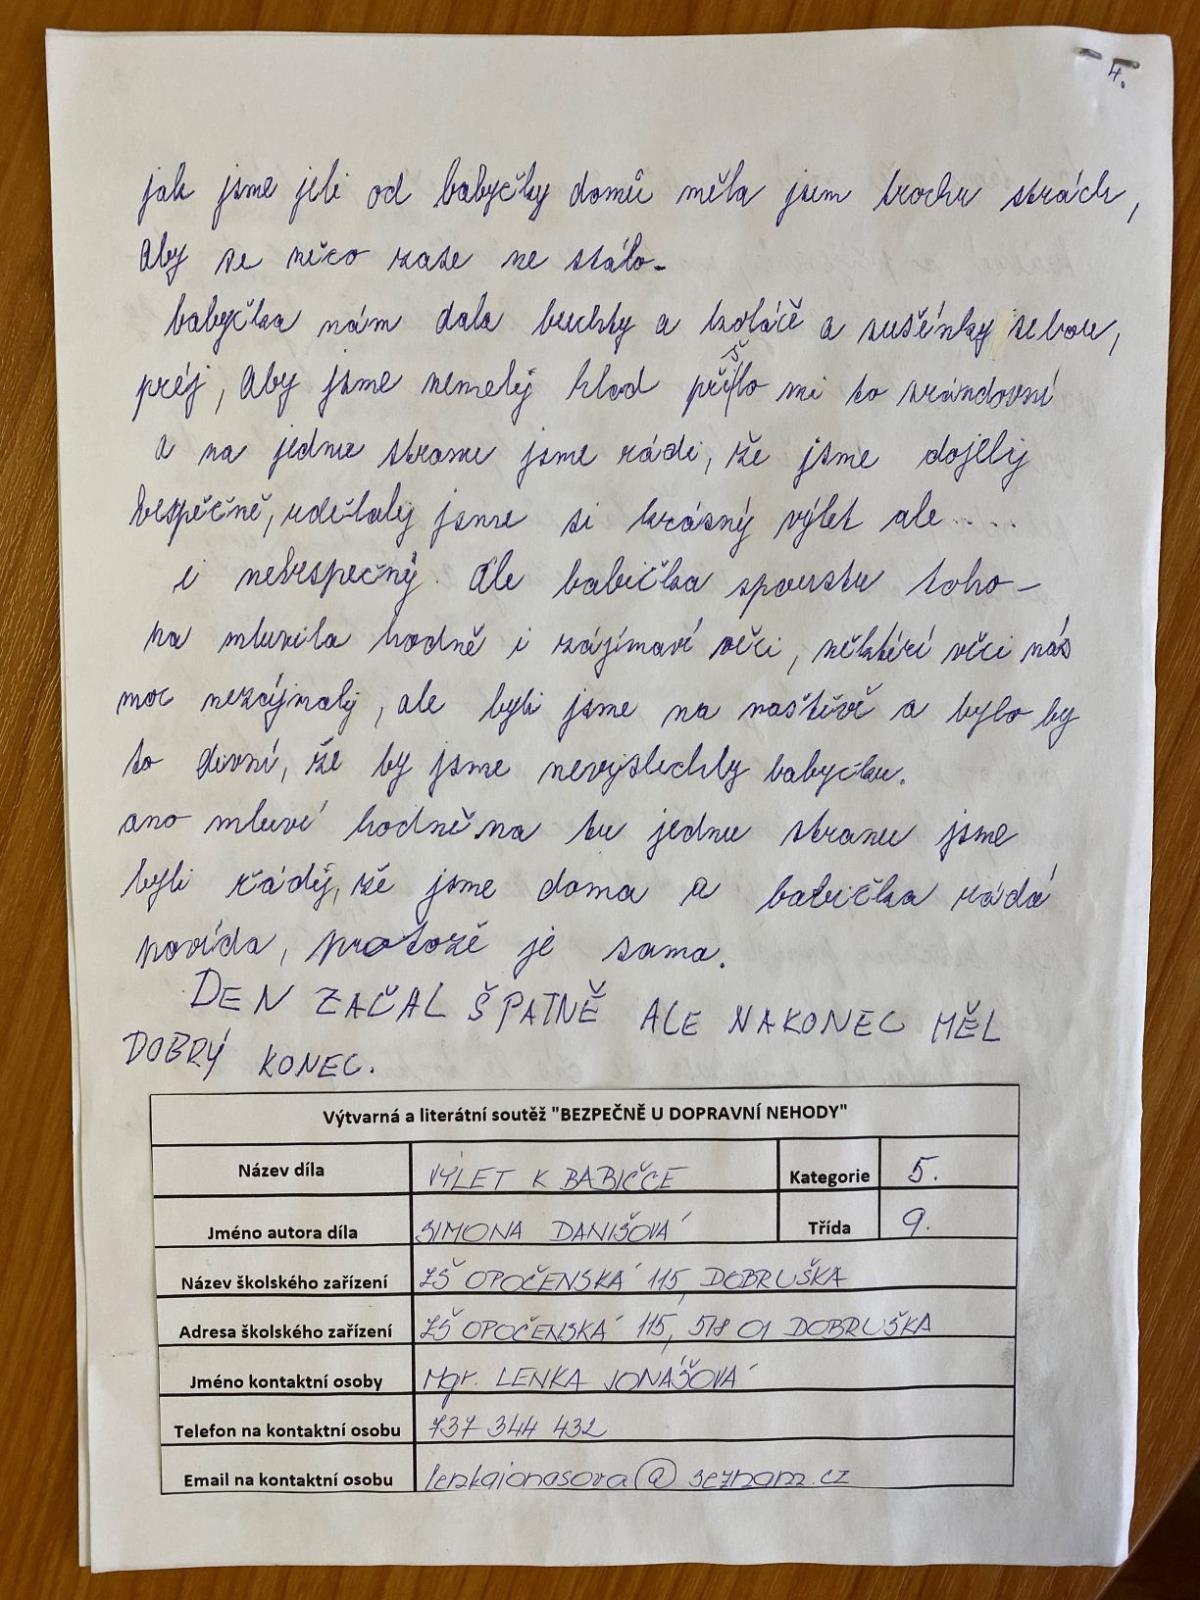 4.
jak jsme jeli od babyčky domů měla jsem trochu strách,
Aby se něco zase ne stálo.
babyčka nám dala buchty a koláčě a sušénky sebou,
préj, Aby jsme nemely hlad přišlo mi to srándovní
a na jednu stranu jsme rádi, že jsme dojely
bespěčně, udělaly jsme si krásný výlet ale.....
i nebespečný. Ale babička spoustu toho-
na mluvila hodně i zájímaví věci, něktérí věci nás
moc nezájmaly, ale byli jsme na naštěvě a bylo by
to divní, že by jsme nevyslechly babyčku.
ano mluví hodně na tu jednu stranu jsme
byli rády, že jsme doma a babička rádá
povída, protože je sama.
DEN ZAČAL ŠPATNĚ ALE NAKONEC MĚL
DOBRÝ KONEC.
Výtvarná a literátní soutěž "BEZPEČNĚ U DOPRAVNÍ NEHODY"
Název díla VÝLET K BABIČCE Kategorie 5.
Jméno autora díla SIMONA DANIŠOVÁ Třída 9.
Název školského zařízení ZŠ OPOČENSKÁ 115, DOBRUŠKA
Adresa školského zařízení ZŠ OPOČENSKÁ 115, 518 01 DOBRUŠKA
Jméno kontaktní osoby Mgr. LENKA JONÁŠOVÁ
Telefon na kontaktní osobu 737 344 432
Email na kontaktní osobu lenkajonasova@seznam.cz